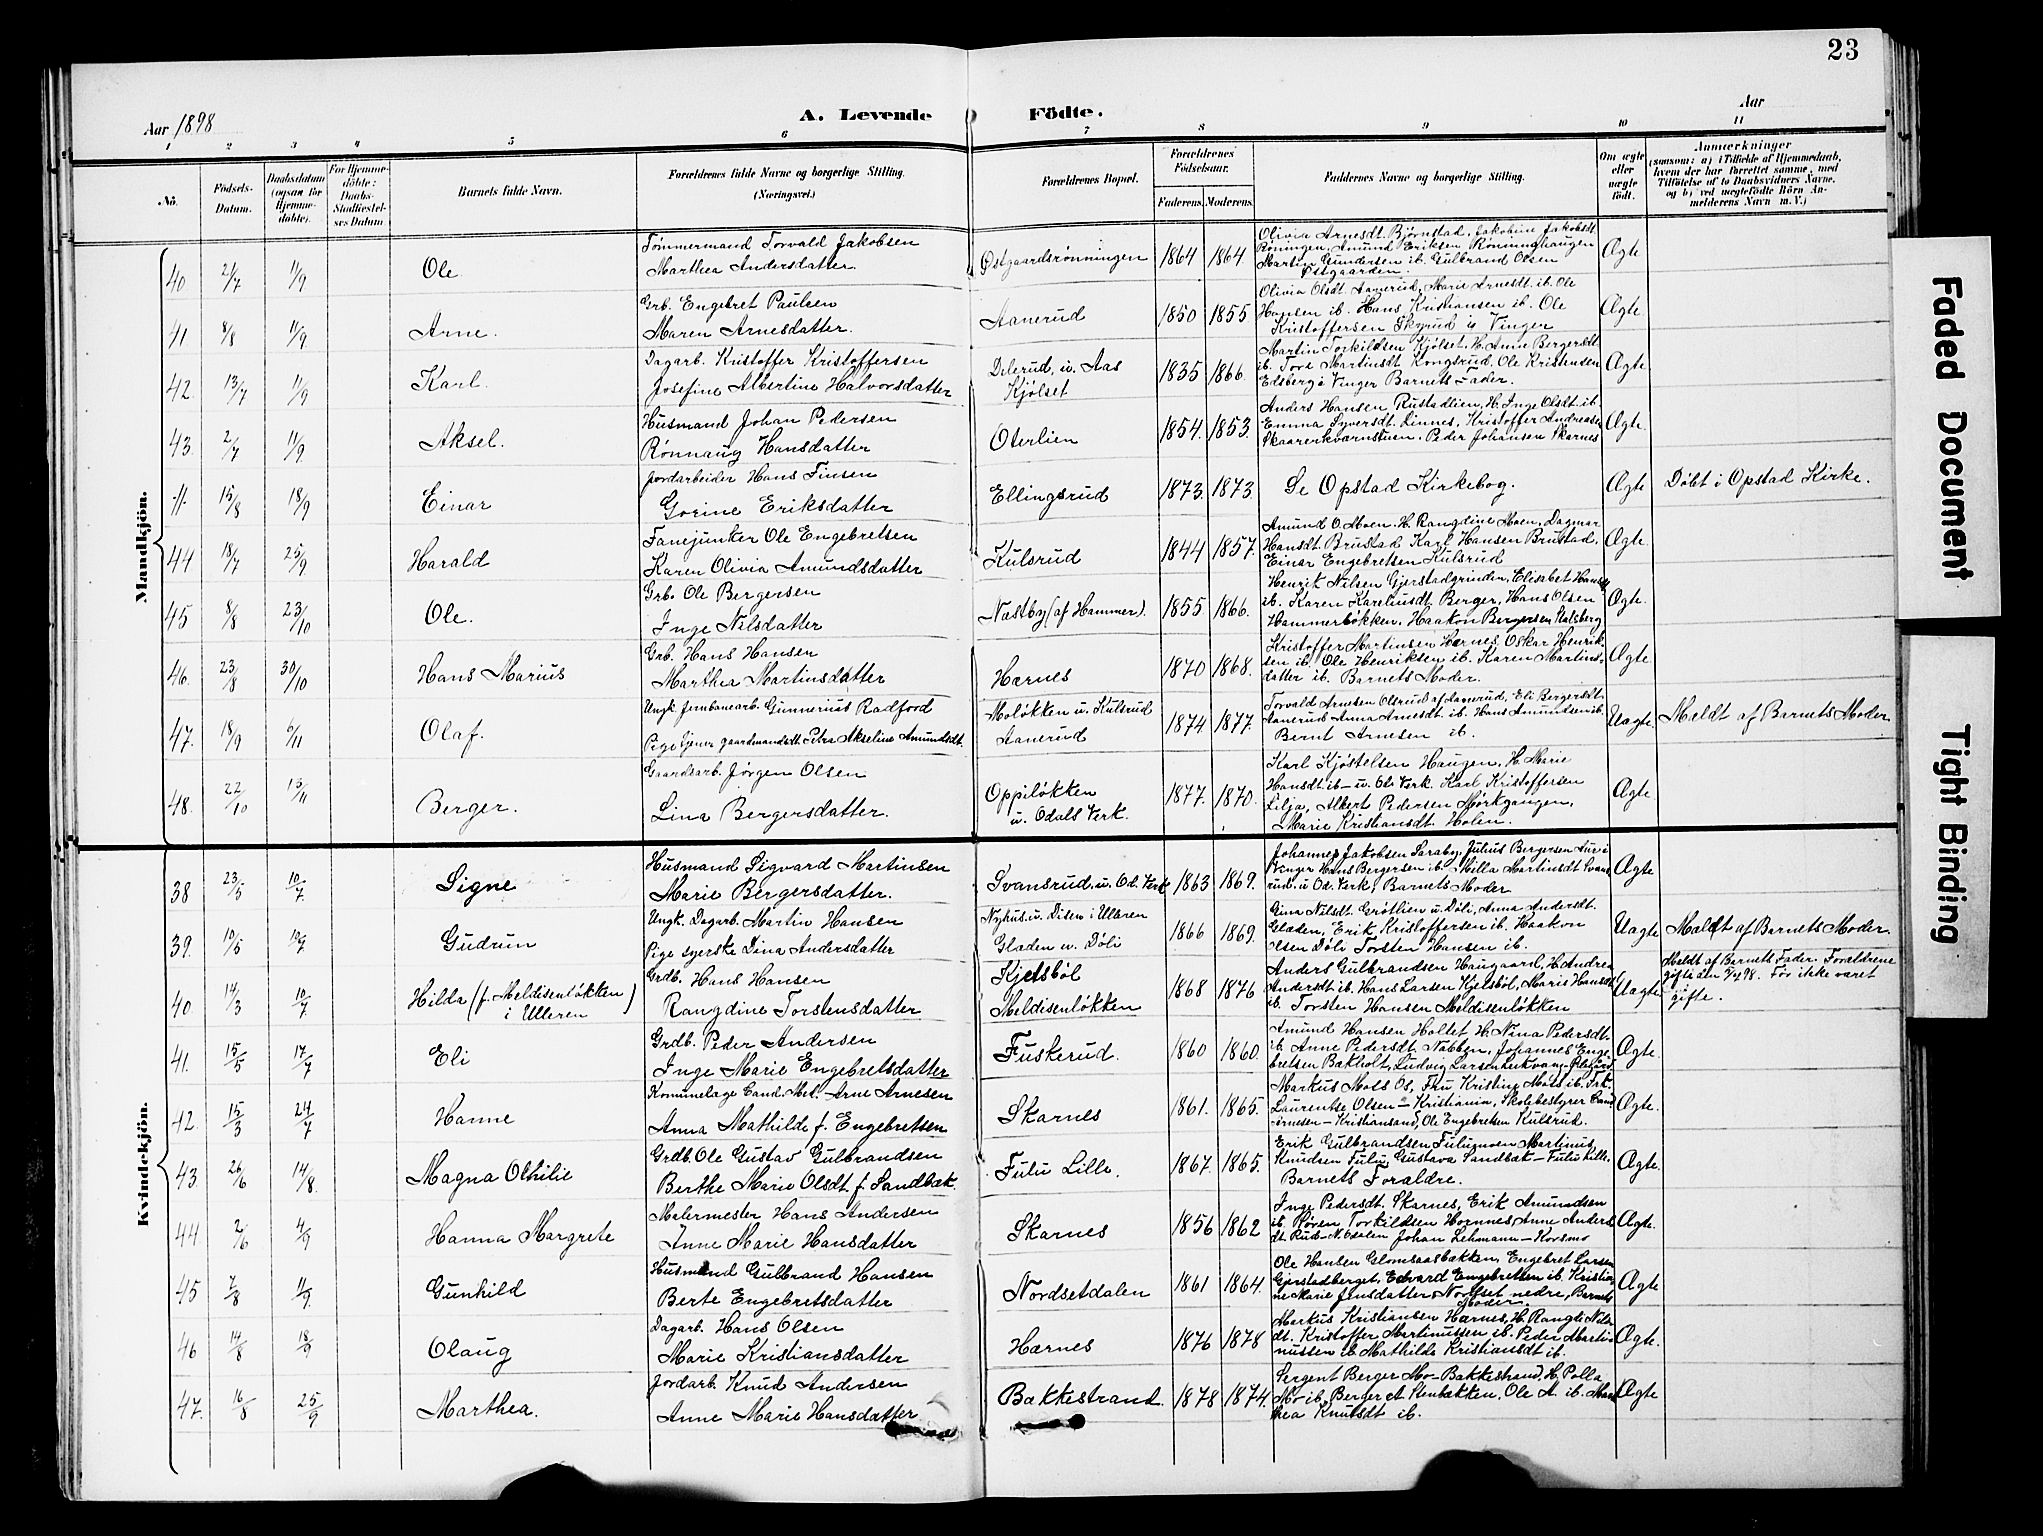 23
Aar 1898
A. Levende Födte.
Aar
1 2 3 4 5 6 7 8 9 10 11
No.
Födsels-Datum.
Daabsdatum (ogsaa for Hjemmedöbte).
For Hjemmedöbte: Daabs-Stadfæstelses Datum
Barnets fulde Navn.
Forældrenes fulde Navne og borgerlige Stilling.
(Næringsvei.)
Forældrenes Bopæl.
Forældrenes Födselsaar.
Faderens. Moderens.
Faddernes Navne og borgerlige Stilling.
Om ægte eller uægte födt.
Anmærkninger
(saasom: a) i Tilfælde af Hjemmedaab, hvem der har forrettet samme, med Tilföielse af to Daabsvidners Navne, og b) ved uægtefödte Börn Anmelderens Navn m. V.)
Mandkjön.
40 2/7 11/9 Ole
Tømmermand Torvald Jakobsen
Marthea Andersdatter
Østgaardsrønningen 1864 1864
Olivia Arnesdt. Bjørnstad, Jakobine Jakobsdt
Røningen, Amund Eriksen Rønninghaugen
Martin Gundersen ib. Gulbrand Olsen
Østgaarden.
Ægte
41 8/8 11/9 Arne.
Grb. Engebret Paulsen
Maren Arnesdatter.
Aanerud 1850 1855
Olivia Olsdt. Aanerud, Marie Arnesdt. ib. Ole
Hansen ib. Hans Kristiansen ib. Ole
Kristoffersen Skyrud i Vinger
Ægte
42. 13/7 11/9 Karl.
Dagarb. Kristoffer Kristoffersen
Josefine Albertine Halvorsdatter
Delerud, u. Aas
Kjølset 1835 1866.
Martin Torkildsen Kjølset. H. Anne Bergersdt
ib. Tora Martinsdt Kongsrud. Ole Kristiansen
Edsberg i Vinger Barnets Fader.
Ægte
43. 2/7 11/9 Aksel.
Husmand Johan Pedersen
Rønnaug Hansdatter
Oterlien 1854. 1853.
Anders Hansen Rustadlien, H. Inge Olsdt. ib.
Emma Syversdt. Linnes, Kristoffer Andreassen
Skaarerkvarnstuen. Peder Johansen Skarnes
Ægte.
-"- 15/8 18/9 Einar
Jordarbeider Hans Finsen
Gorine Eriksdatter
Ellingsrud 1873. 1873.
Se Opstad Kirkebog.
Ægte Døbt i Opstad Kirke.
44 18/7 25/9 Harald
Fanejunker Ole Engebretsen
Karen Olivia Amundsdatter
Kulsrud 1844 1857.
Amund O. Moen. H. Rangdine Moen, Dagmar
Hansdt. Brustad Karl Hansen Brustad,
Einar Engebretsen Kulsrud
Ægte.
45 8/8 23/10 Ole.
Grb. Ole Bergersen
Inge Nilsdatter
Nastby (af Hammer). 1855 1866.
Henrik Nilsen Gjerstadgrinden, Elisabet Hansdt
ib. Karen Karelinsdt. Berger, Hans Olsen
Hammerløkken. Haakon Bergersen
Ægte.
46. 23/8 30/10 Hans Marius
Grb. Hans Hansen
Marthea Martinsdatter
Hærnes 1870 1868.
Kristoffer Martinsen Hærnes, Oskar Henriksen
ib. Ole Henriksen ib. Karen Martins-
datter ib. Barnets Moder.
Ægte.
47. 18/9 6/11 Olaf.
Ungk. Jernbanearb. Gunnerius Radford
Pige tjener gaardmandsdt. Petra Akseline Amundsdt.
Moløkken u. Kulsrud
Aanerud 1874. 1877.
Torvald Arnesen Olsrud af Aanerud, Eli Bergersdt
Aanerud Anna Arnesdt. ib. Hans Amundsen ib.
Bernt Arnesen ib.
Uægte. Meldt af Barnets Moder
48. 22/10 13/11 Berger.
Gaardsarb. Jørgen Olsen
Lina Bergersdatter.
Oppiløkken
u. Odals Verk. 1877. 1870.
Karl Kjøstelsen Haugen, H. Marie
Hansdt. ib - u. Od. Verk. Karl Kristoffersen
Lilja, Albert Pedersen Mørkgangen,
Marie Kristiansdt. Holen.
Ægte.
Kvindekjön.
38 23/5 10/7 Signe
Husmand Sigvard Martinsen
Marie Bergersdatter.
Svansrud, u. Od. Verk 1863 1869.
Johannes Jakobsen Saraby, Julius Bergersen Aur i
Vinger Hans Bergersen ib. Milla Martinsdt Svans
rud. u Od. Verk, Barnets Moder
Ægte
39. 10/5 10/7 Gudrun
Ungk. Dagarb. Martin Hansen
Pige syerske Dina Andersdatter
Nyhus. u. Disen i Ulleren
Gladen u. Døli 1866 1869.
Gina Nilsdt. Grøtlien u. Døli, Anna Andersdt.
Gladen, Erik Kristoffersen ib. Haakon
Olsen Døli Torsten Hansen ib.
Uægte Meldt af Barnets Moder.
40. 14/3 10/7 Hilda (f. Meldisenløkken i Ulleren)
Grdb. Hans Hansen
Rangdine Torstensdatter
Kjelsbøl
Meldisenløkken 1868 1876
Anders Gulbrandsen Haugaard, H. Andrea
Andersdt ib. Hans Larsen Kjelsbøl, Maris Hansdt
ib. Torsten Hansen Meldisenløkken
Uægte
Meldt af Barnets Fader. Forældrene
gifte den 98. Før ikke været
gifte.
41. 15/5 17/7 Eli
Grdb. Peder Andersen
Inge Marie Engebretsdatter
Fuskerud. 1860 1860.
Amund Hansen Hollet H. Nina Pedersdt.
ib. Anne Pedersdt. Nabben, Johannes Enge
bretsen Bakholt, Ludvig Larsen
Ægte.
42. 15/3 24/7 Hanne
Kommunelæge Cand. Med. Arne Arnesen
Anna Mathilde f. Engebretsen
Skarnes 1861. 1865.
Markus Moss Os, Fru Kristine Moss ib. Frk.
Laurentse Olsen - Kristiania, Skolebestyrer
Arnesen - Kristiansand, Ole Engebretsen Kulsrud.
Ægte.
43 26/6 14/8. Magna Othilie
Grdb. Ole Gustav Gulbrandsen
Berthe Marie Olsdt f. Sandbæk.
Fulu Lille. 1867. 1865.
Erik Gulbrandsen, Fulumoen Martinus
Knudsen Fulu, Gustava Sandbæk - Fulu Lille
Barnets Forældre.
Ægte.
44 2/6 4/9 Hanna Margrete
Malermester Hans Andersen
Anne Marie Hansdatter
Skarnes 1856 1862
Inge Pedersdt. Skarnes, Erik Amundsen
ib. Søren Torkildsen Hornnes, Anne Anders
dt Rud - N. Odalen Johan Lehmann - Korsmo
Ægte.
45 7/8 11/9. Gunhild
Husmand Gulbrand Hansen
Berte Engebretsdatter
Nordsetdalen 1861 1864.
Ole Hansen Glomsaasbakken, Engebret Larsen
Gjerstadberget, Edvard Engebretsen ib. Kristia
ne Marie Jensdatter, Nordset nedre, Barnets
Moder.
Ægte
46 14/8 18/9 Olaug
Dagarb. Hans Olsen
Marie Kristiansdatter
Hærnes 1876 1878
Markus Kristiansen Hærnes, H. Rangdi Nils-
dt. Kristoffer Martinussen ib. Peder Marti-
nussen ib. Mathilde Kristiansdt ib.
Ægte.
47. 16/8 25/9 Marthea.
Jordarb. Knud Andersen
Anne Marie Hansdatter
Bakkestrand. 1878 1874.
Sergent Berger Mo - Bakkestrand, H. Polla
Mo ib. Berger A Stenbækken, Ole A. ib. Mar
thea Knutsdt ib.
Ægte
Faded Document
Tight Binding